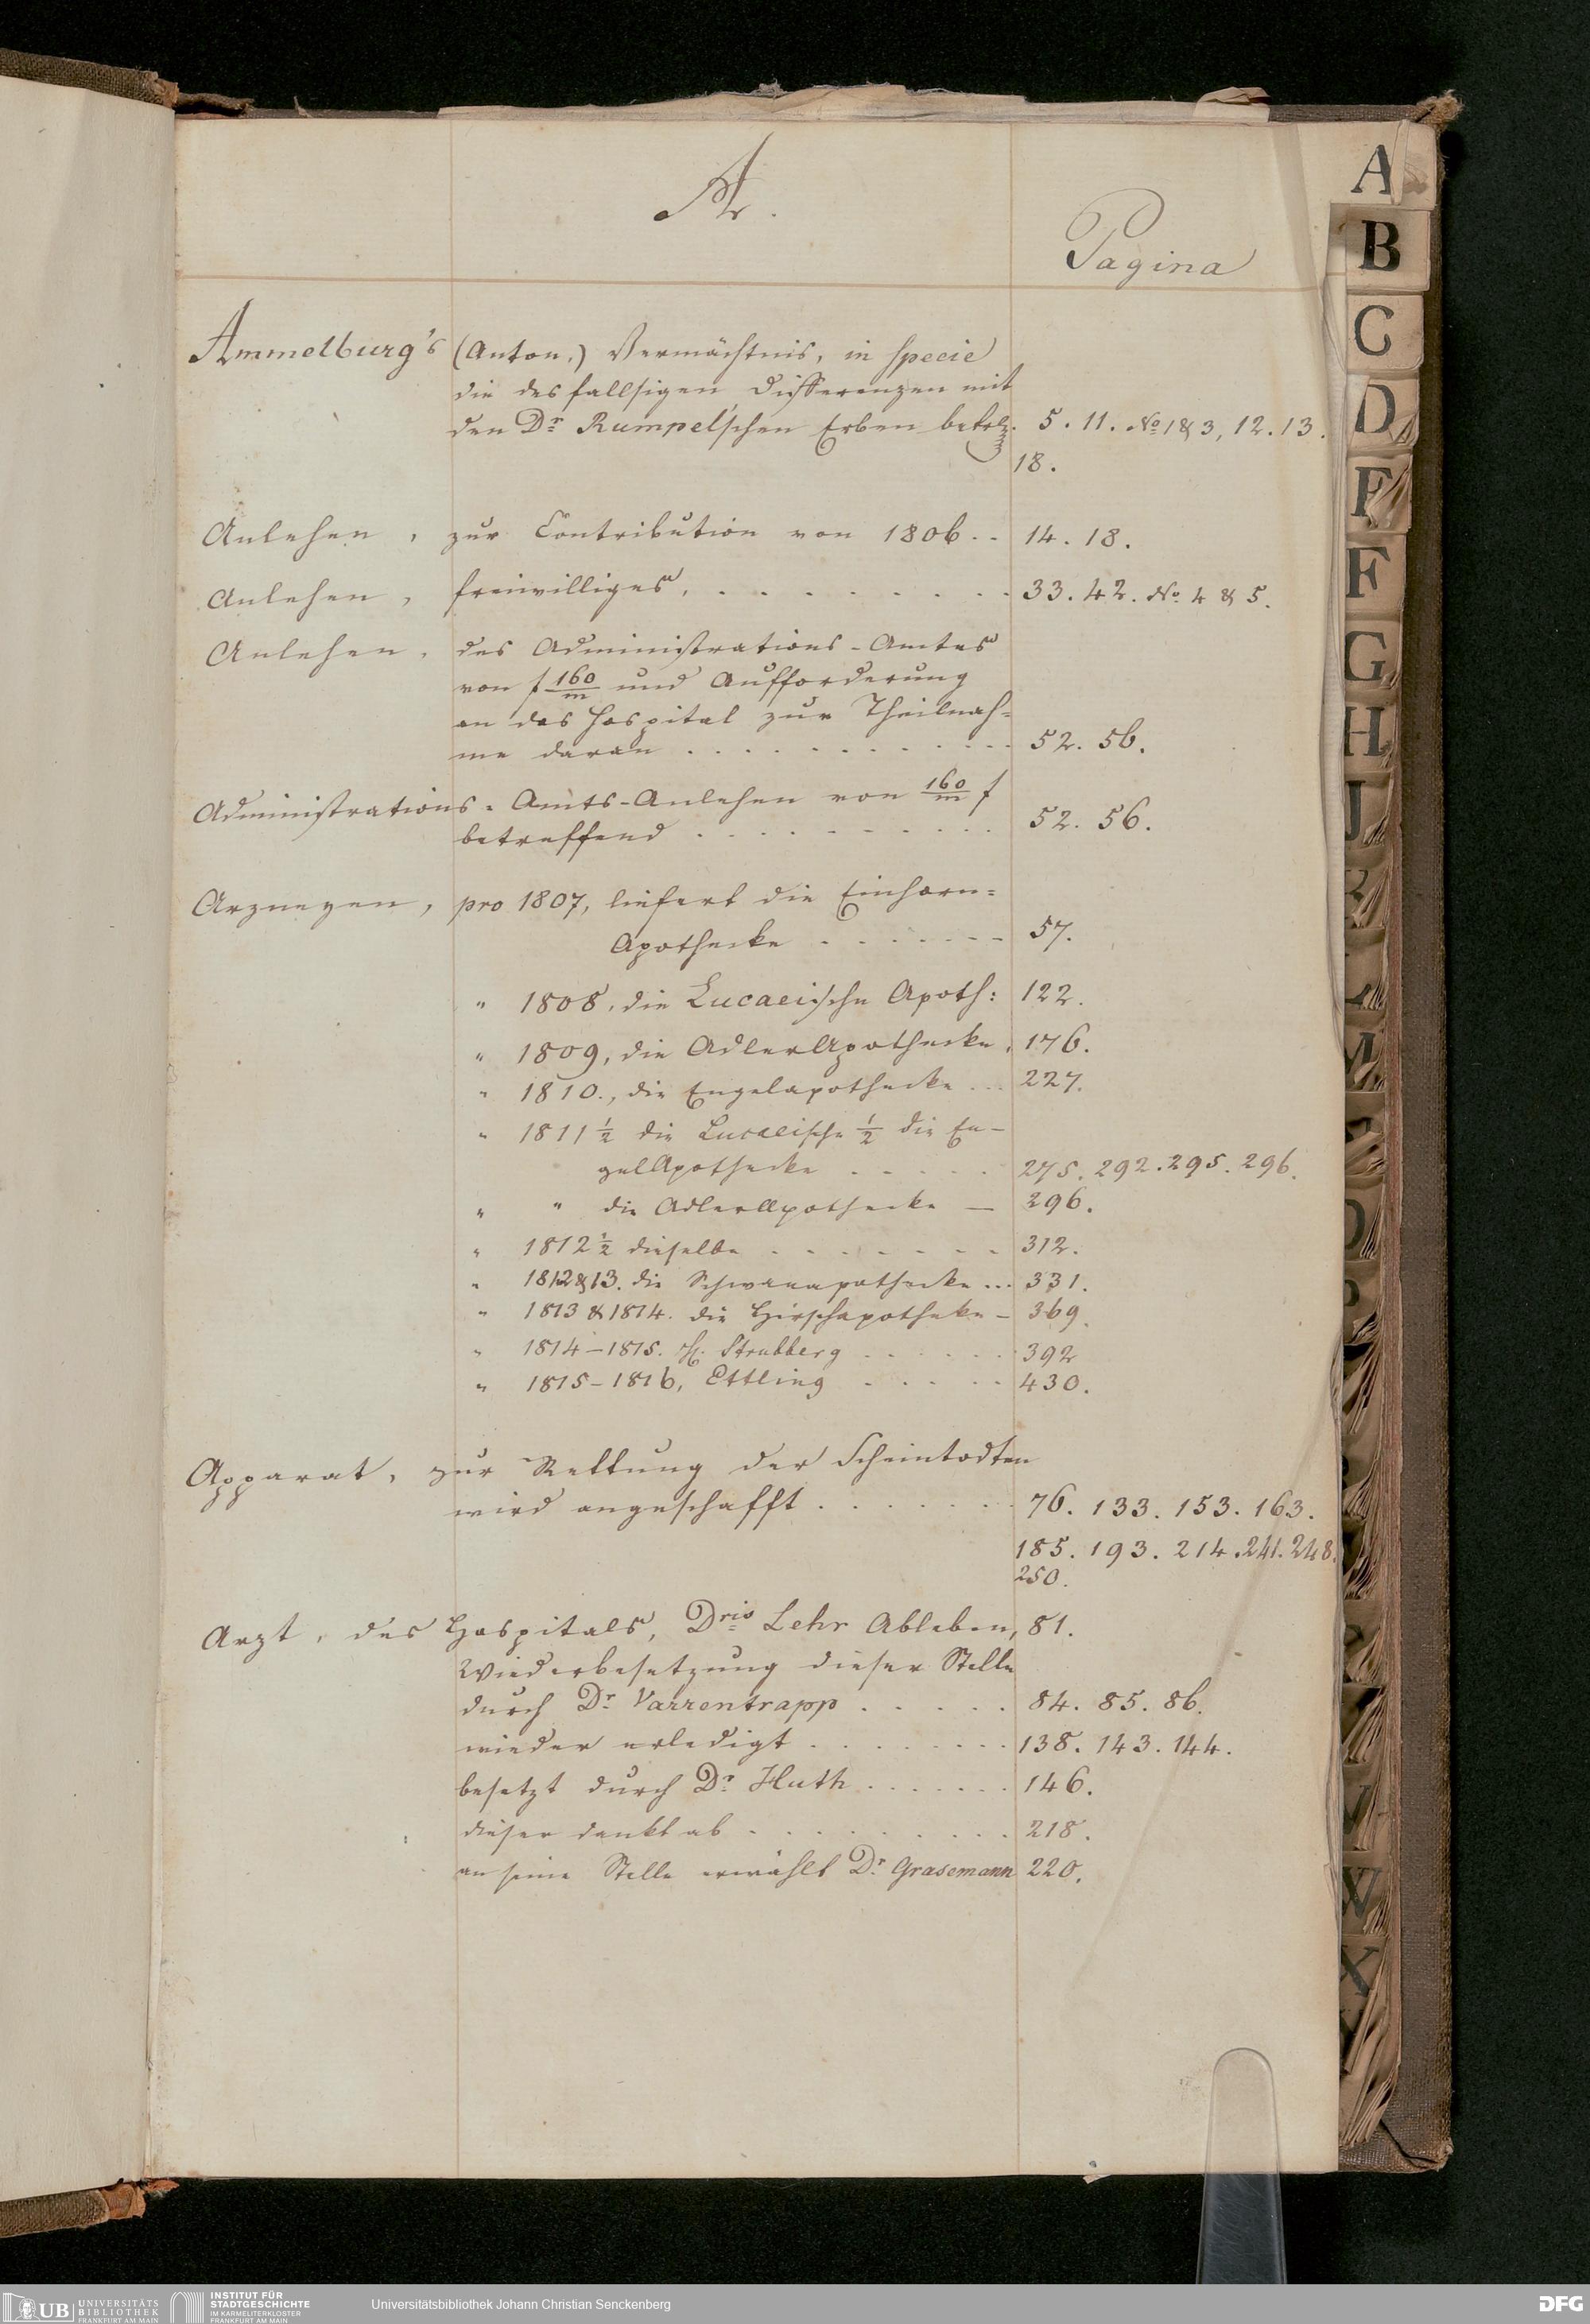 A.
Pagina
Ammelburg's (Anton,) Vermächtnis, in specie
die desfallsigen Differenzen mit
den Dr Rumpel'schen Erben betr. 5. 11. No 1 & 3, 12. 13.
18.
Anlehen, zur Contribution von 1806. . 14. 18.
Anlehen, freiwilliges, . . . . . . . . 33. 42. No. 4 & 5.
Anlehen, des Administrations-Amtes
von f 160/m und Aufforderung
an das Hospital zur Theilnah=
me daran . . . . . . . . . 52. 56.
Administrations=Amts-Anlehen von 160/m f
betreffend . . . . . . . . 52. 56.
Arzneyen, pro 1807, liefert die Einhorn=
Apothecke . . . . . . . 57.
" 1808, die Lucaeische Apoth: 122.
" 1809, die AdlerApothecke. 176.
" 1810., die Engelapothecke ... 227.
" 1811 ½ die Lucaeische ½ die En-
gelApothecke . . . . . 275. 292. 295. 296.
" " die AdlerApothecke — 296.
" 1812 ½ dieselbe . . . . . . . 312.
" 1812 & 13. die Schwanapothecke ... 331.
" 1813 & 1814. die Hirschapotheke – 369.
" 1814–1815. H. Strubberg . . . . . . 392
" 1815–1816, Ettling . . . . . 430.
Apparat, zur Rettung der Scheintodten
wird angeschafft . . . . . . . 76. 133. 153. 163.
185. 193. 214. 241. 248.
250.
Arzt, des Hospitals, Dris Lehr Ableben, 81.
Wiederbesetzung dieser Stelle
durch Dr. Varrentrapp . . . . . 84. 85. 86.
wieder erledigt . . . . . . . . 138. 143. 144.
besetzt durch Dr. Huth . . . . . . . 146.
dieser dankt ab . . . . . . . . . 218.
an seine Stelle erwählt Dr. Grasemann 220.
A
B
C
D
E
F
G
H
J
M
O
P
V
W
X
UB UNIVERSITÄTS
BIBLIOTHEK
FRANKFURT AM MAIN
INSTITUT FÜR
STADTGESCHICHTE
IM KARMELITERKLOSTER
FRANKFURT AM MAIN
Universitätsbibliothek Johann Christian Senckenberg
DFG